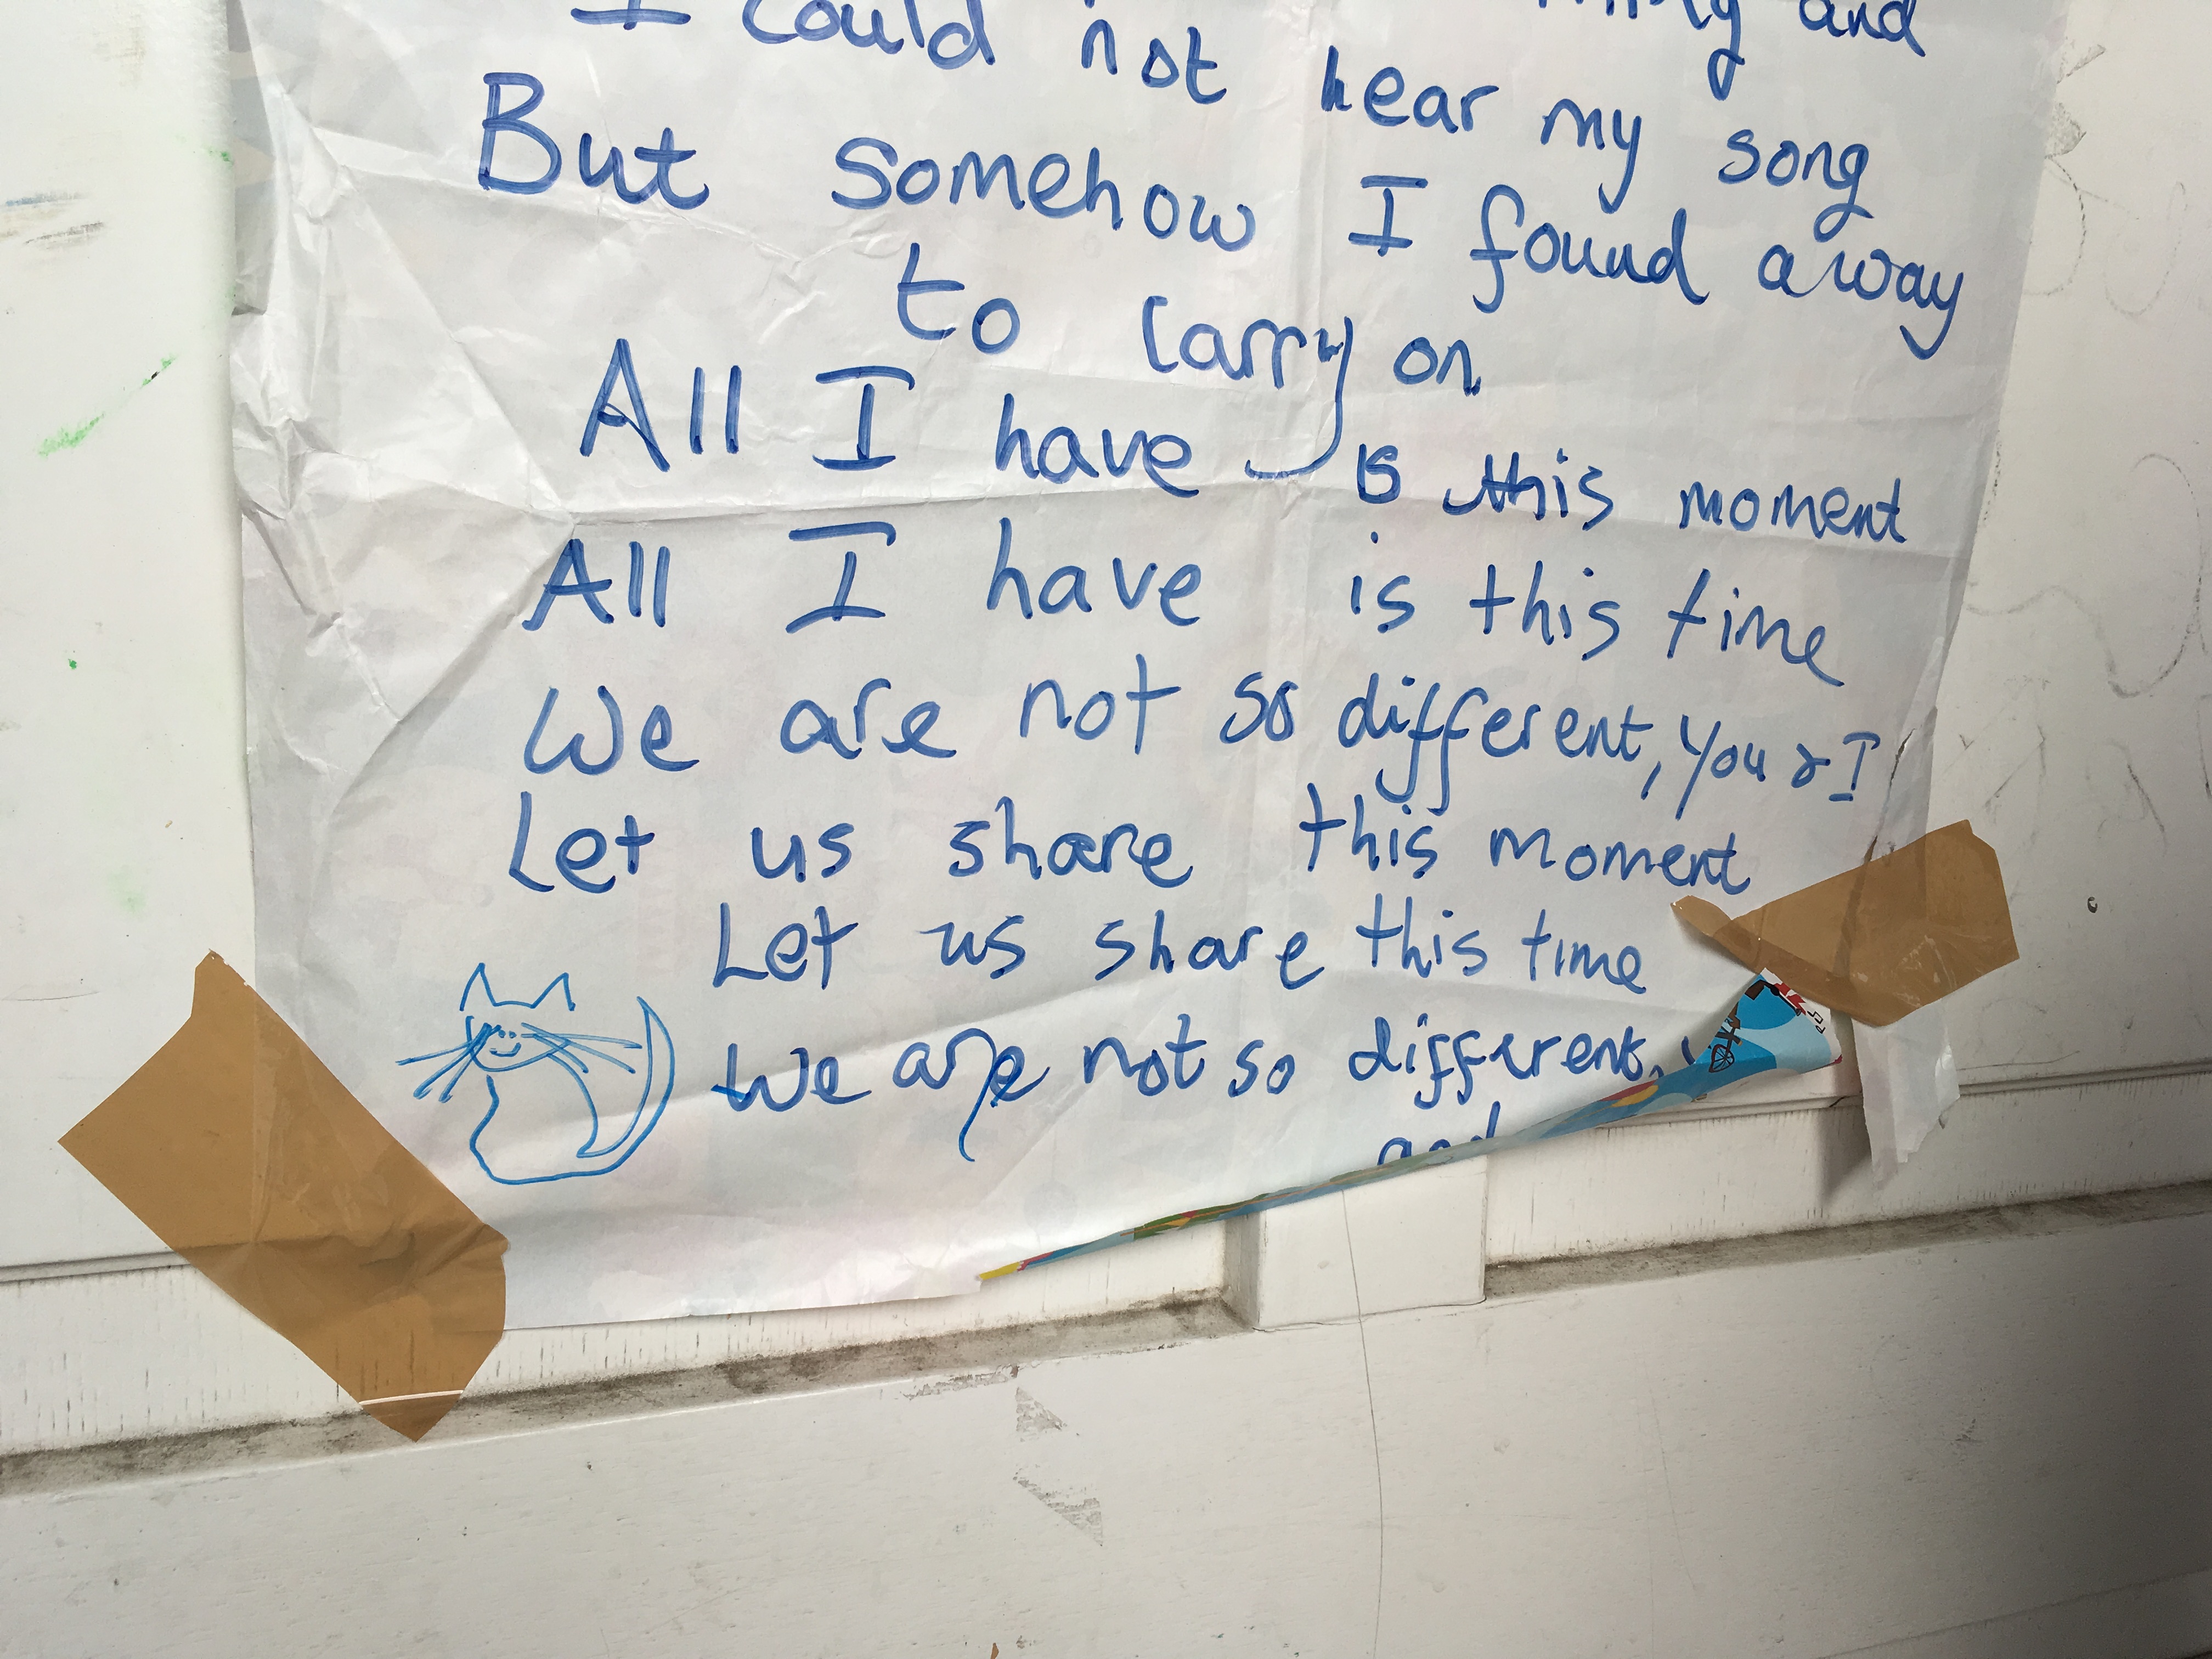 and
I could not hear my song
But somehow I found away
to carry on
All I have is this moment
All I have is this time
We are not so different, you & I
Let us share this moment
Let us share this time
We are not so different,
and